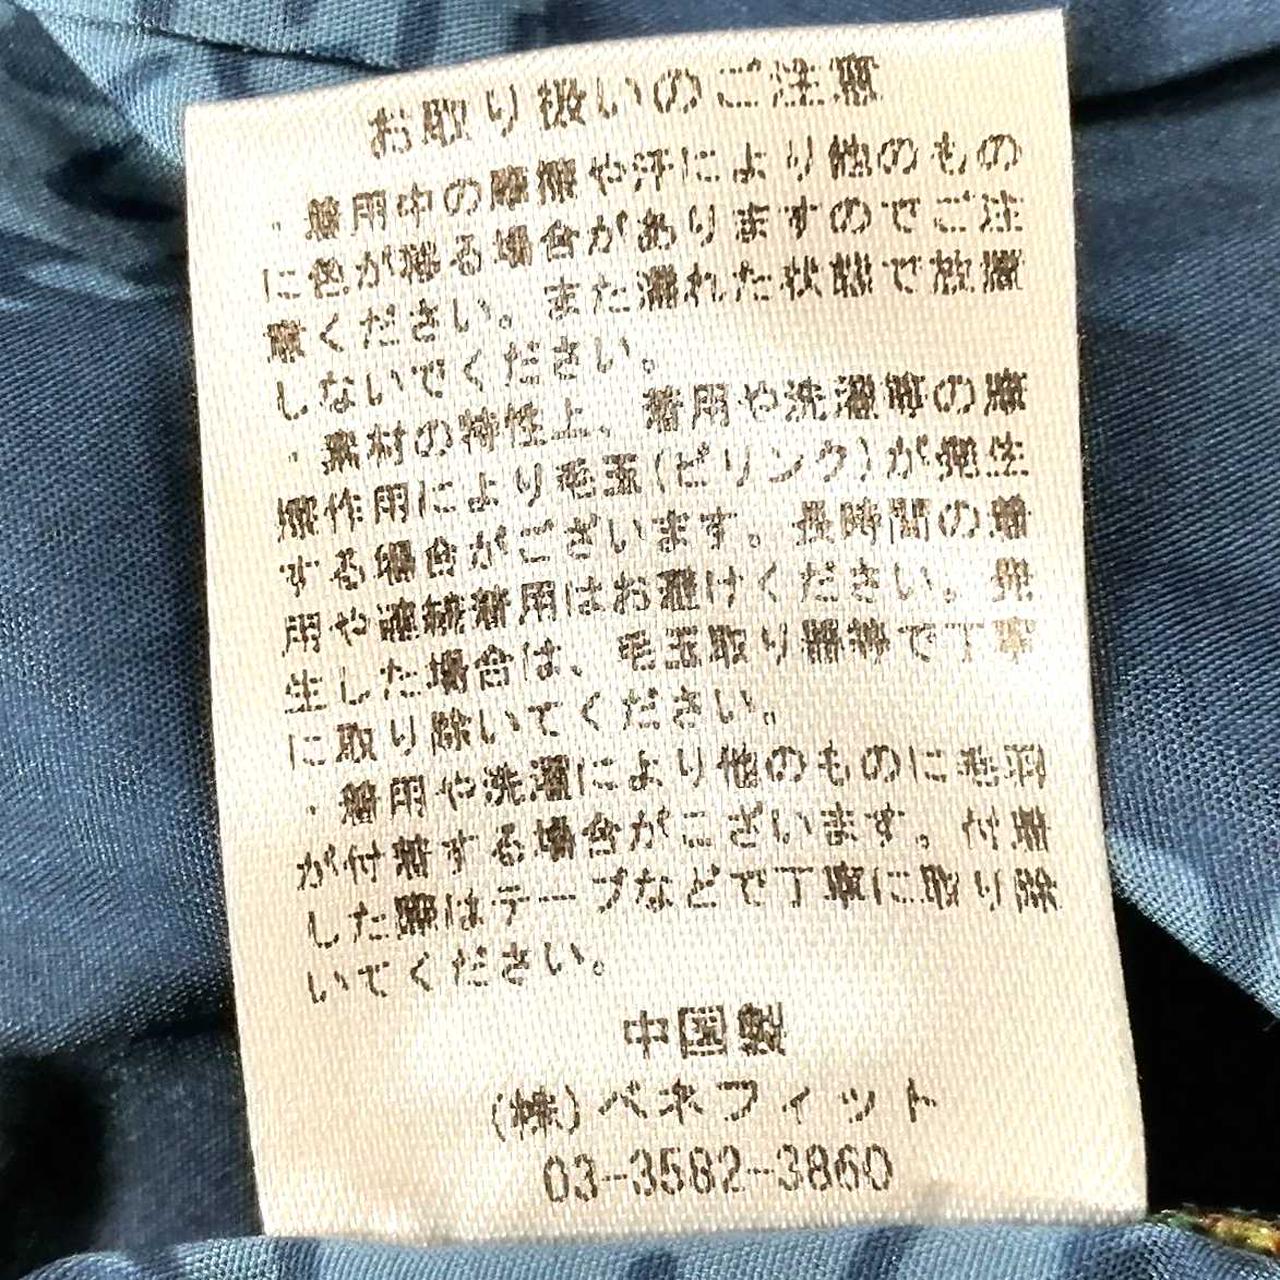 お取り扱いのご注意
・着用中の摩擦や汗により他のもの
に色が移る場合がありますのでご注
意ください。また濡れた状態で放置
しないでください。
・素材の特性上、着用や洗濯等の摩
擦作用により毛玉(ピリング)が発生
する場合がございます。長時間の着
用や連続着用はお避けください。発
生した場合は、毛玉取り器等で丁寧
に取り除いてください。
・着用や洗濯により他のものに毛羽
が付着する場合がございます。付着
した際はテープなどで丁寧に取り除
いてください。
中国製
(株)ベネフィット
03-3582-3860